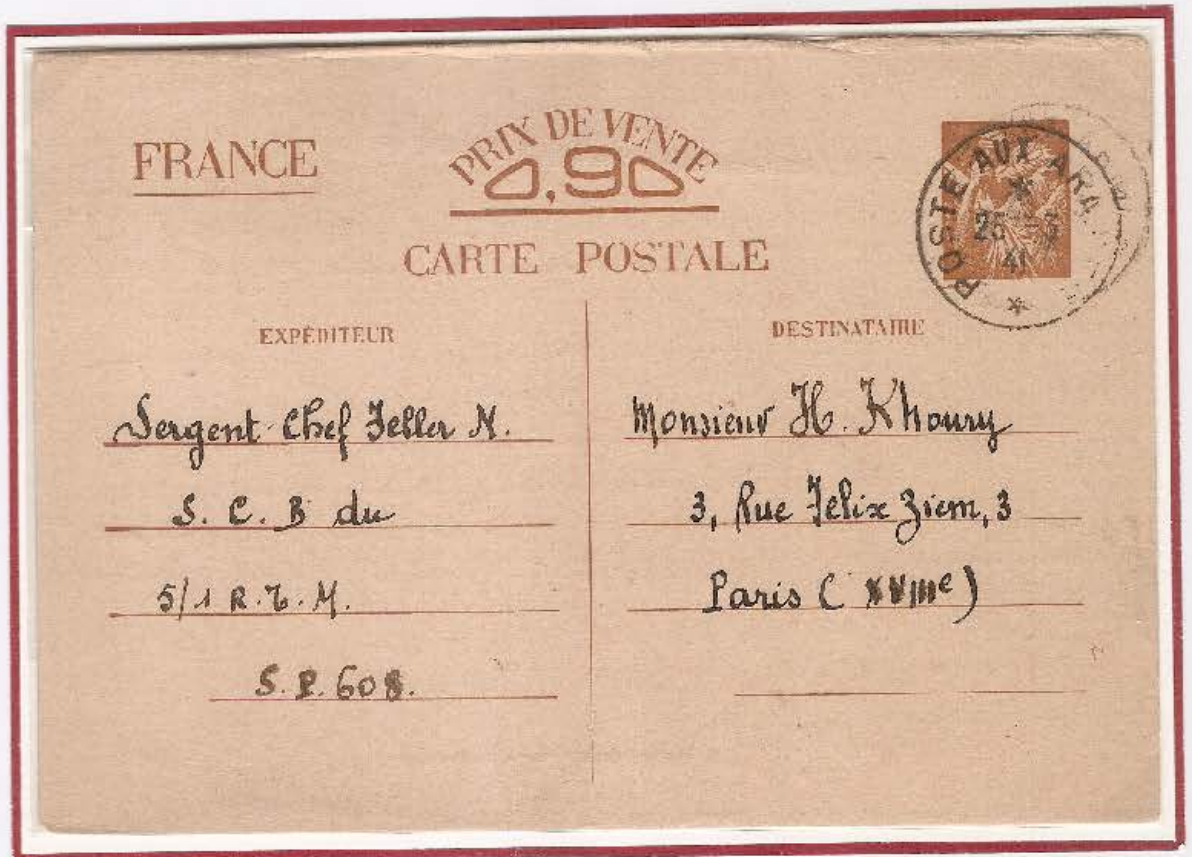 FRANCE
PRIX DE VENTE
0,90
CARTE POSTALE
POSTE AUX ARM
25 - 3
41
EXPÉDITEUR
Sergent-Chef Feller N.
S. C. B du
5/1 R.T.M.
S.P. 608.
DESTINATAIRE
Monsieur H. Khoury
3, Rue Felix Ziem, 3
Paris (XVIIIe)